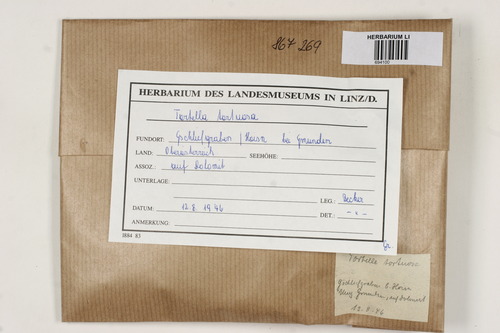 867 269
HERBARIUM LI
694100
HERBARIUM DES LANDESMUSEUMS IN LINZ/D.
Tortella tortuosa
FUNDORT: Gschliefgraben / bei Gmunden
LAND: Oberösterreich SEEHÖHE:
ASSOZ.: auf Dolomit
UNTERLAGE:
LEG.: Becker
DATUM: 12.8.1946 DET.: - " -
ANMERKUNG:
1884 83
Gr.
Tortella tortuosa
Gschliefgraben
Gmunden, auf Dolomit
12. 8. 46